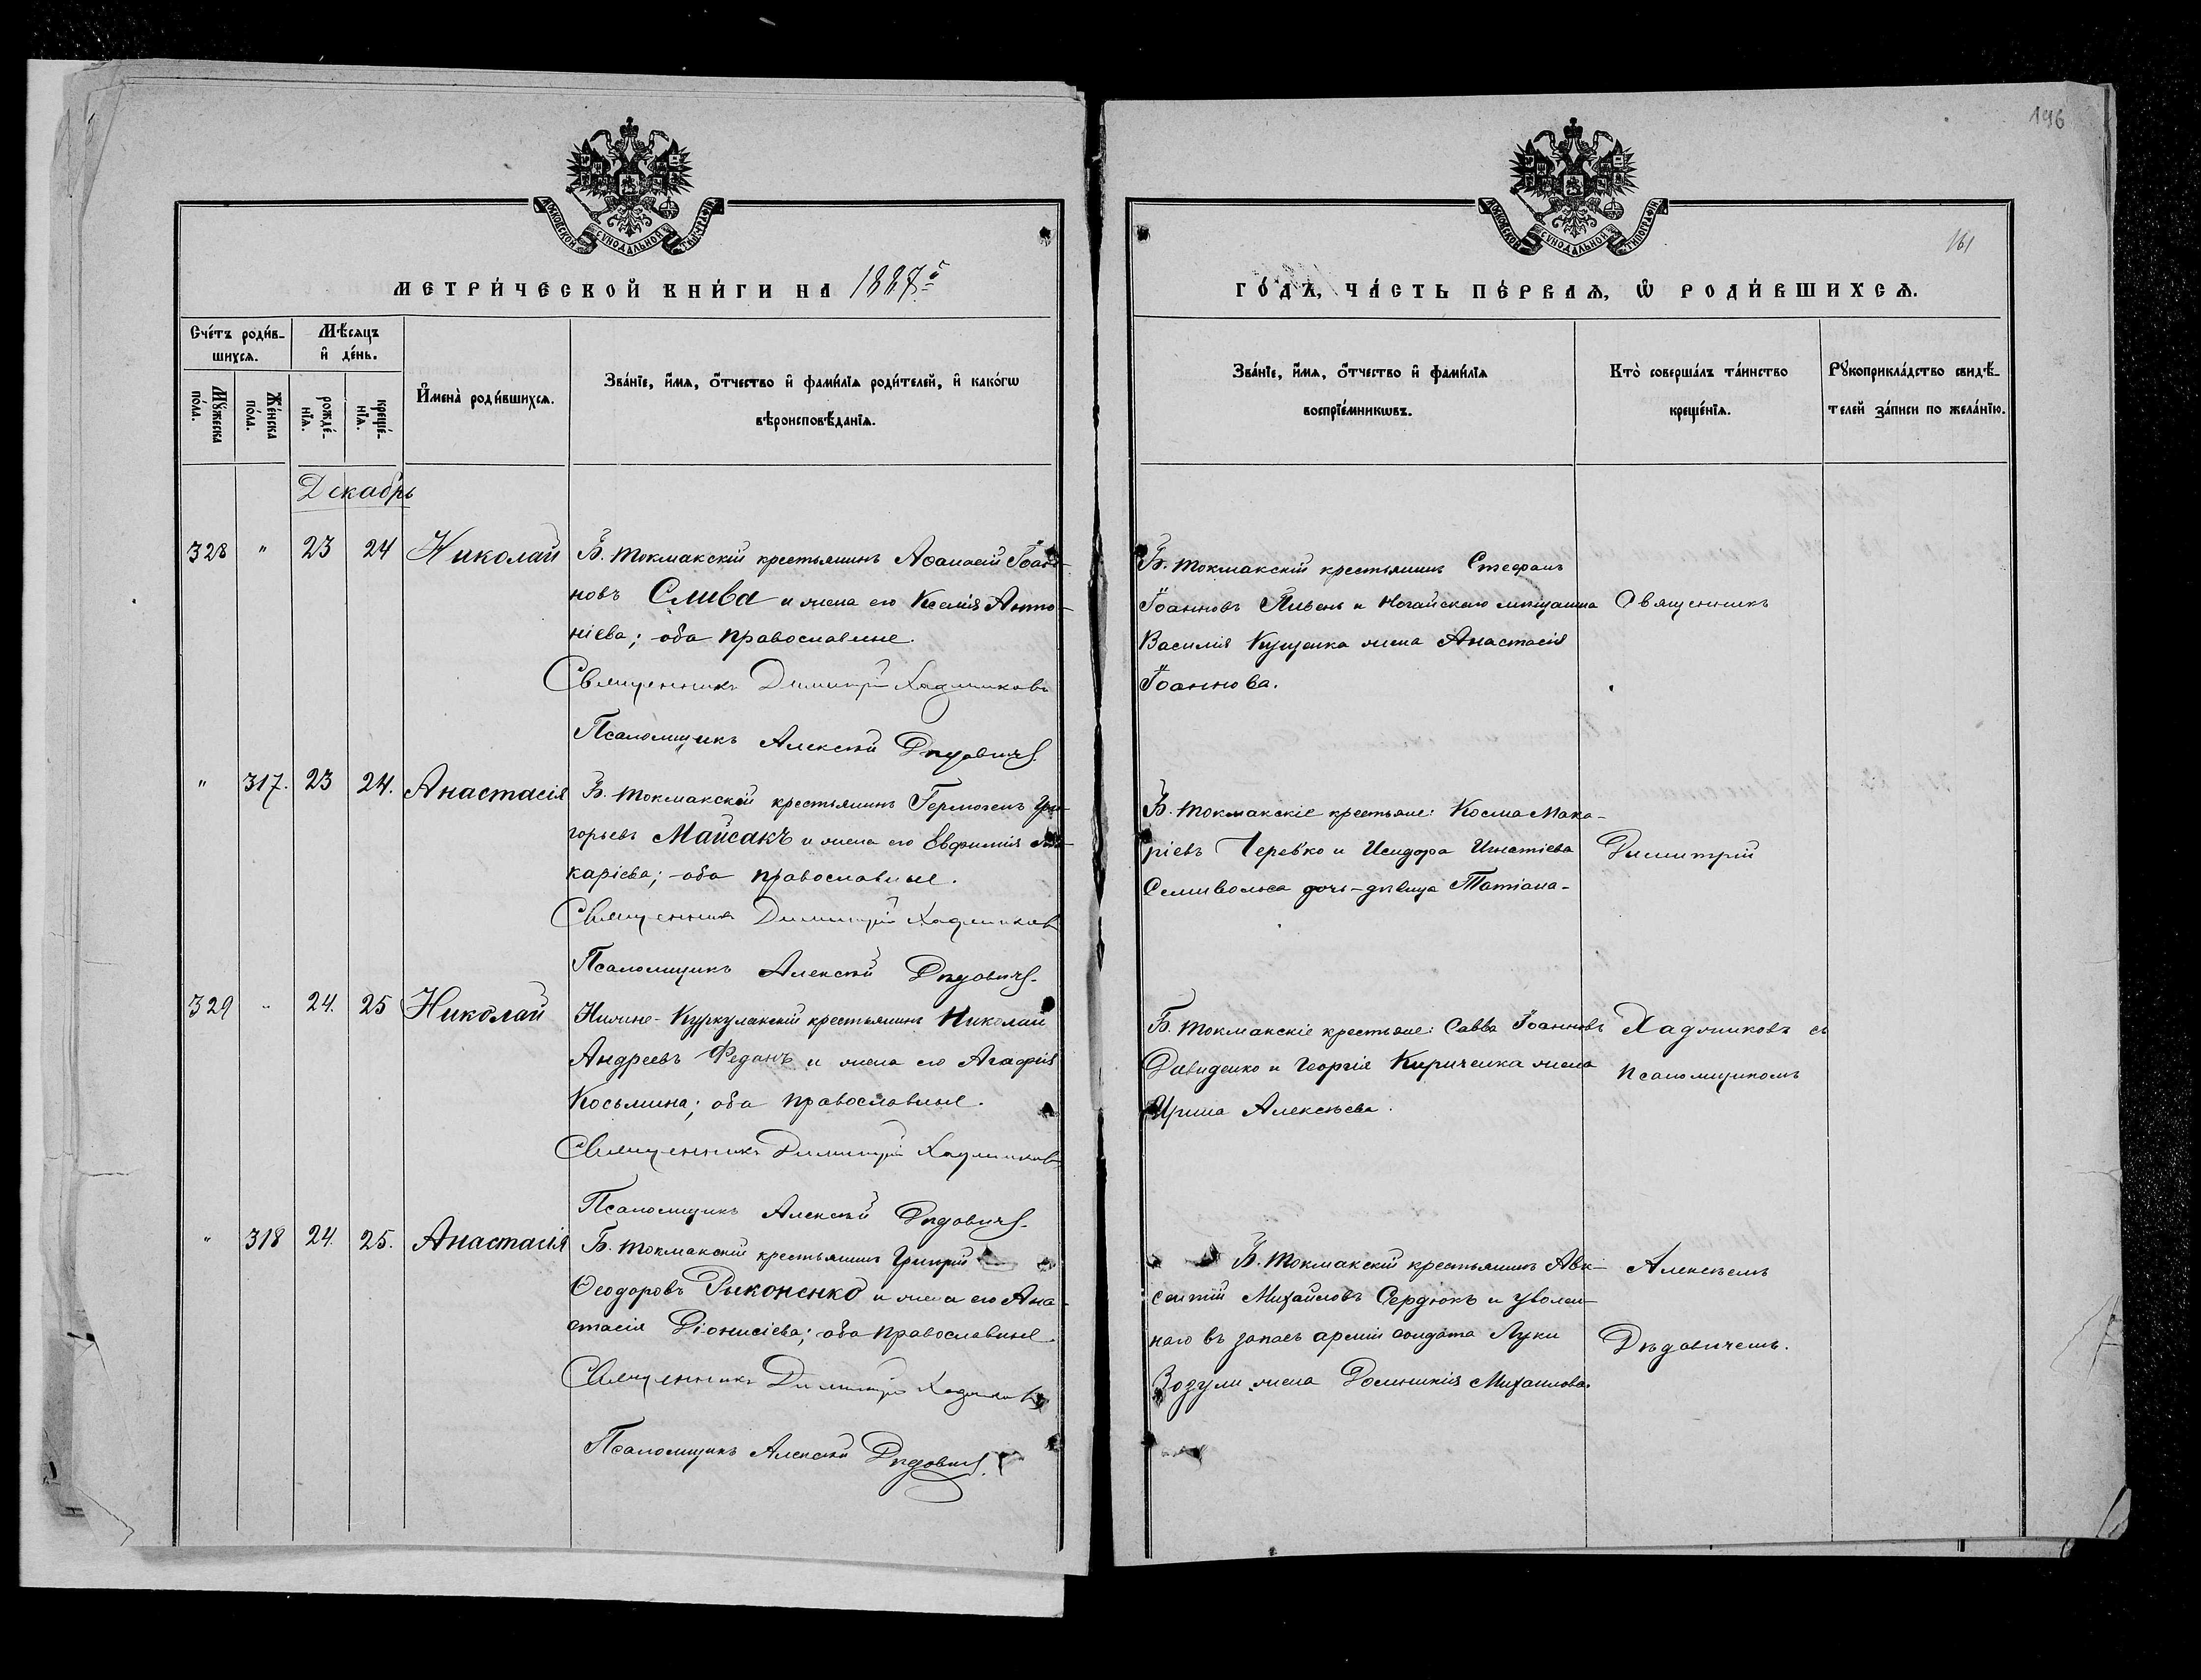 196
МОСКОВСКОЙ СѴНОДАЛЬНОЙ ТИПОГРАФІИ
МОСКОВСКОЙ СѴНОДАЛЬНОЙ ТИПОГРАФІИ
161
МЕТРИ́ЧЕСКОЙ КНИ́ГИ НА 1887й
ГО́ДЪ, ЧА́СТЬ ПЕ́РВАѦ, Ѡ҆ РОДИ́ВШИХСѦ.
Сче́тъ роди́в-
шихсѧ.
Мѣ́сяцъ
и҆ де́нь.
Мꙋ́жеска по́ла.
Же́нска по́ла.
рожде́-нїѧ.
креще́-нїѧ.
И҆мена̀ роди́вшихсѧ.
Зва́нїе, и҆́мѧ, ѻ҆́тчество и҆ фами́лїѧ роди́телей, и҆ како́гѡ
вѣроисповѣ́данїѧ.
Зва́нїе, и҆́мѧ, ѻ҆́тчество и҆ фами́лїѧ
воспрїе́мникѡвъ.
Кто̀ соверша́лъ та́инство
креще́нїѧ.
Рꙋкоприкла́дство свидѣ́-
телей за́писи по жела́нїю.
Декабрь
328 " 23 24 Николай Б. Токмакскій крестьянинъ Аѳанасій Іоан-
новъ Слива и жена его Ксенія Анто-
ніева; оба православные.
Священникъ Димитрій Хаджиковъ
Псаломщикъ Алексѣй Дѣдовичъ.
Б. Токмакскій крестьянинъ Стефанъ
Іоанновъ Пивень и Ногайскаго мѣщанина
Василія Кущенка жена Анастасія
Іоаннова.
Священникъ
" 317. 23 24. Анастасія Б. Токмакскій крестьянинъ Гермогенъ Гри-
горьевъ Майсакъ и жена его Евфимія Ма-
каріева; оба православные.
Священникъ Димитрій Хаджиковъ
Псаломщикъ Алексѣй Дѣдовичъ.
Б. Токмакскіе крестьяне: Косма Мака-
ріевъ Черевко и Исидора Игнатіева
Семивольса дочь-дѣвица Татіана.
Димитрій
329 " 24. 25 Николай Нижне-Куркулакскій крестьянинъ Николай
Андреевъ Феданъ и жена его Агафія
Косьмина; оба православные.
Священникъ Димитрій Хаджиковъ
Псаломщикъ Алексѣй Дѣдовичъ.
Б. Токмакскіе крестьяне: Савва Іоанновъ
Давиденко и Георгія Кириченка жена
Ирина Алексѣева.
Хаджиковъ съ
псаломщикомъ
" 318 24. 25. Анастасія Б. Токмакскій крестьянинъ Григорій
Ѳеодоровъ Рыконенко и жена его Ана-
стасія Діонисіева; оба православные.
Священникъ Димитрій Хаджиковъ
Псаломщикъ Алексѣй Дѣдовичъ.
Б. Токмакскій крестьянинъ Авк-
сентій Михайловъ Сердюкъ и уволен-
наго въ запасъ арміи солдата Луки
Зозули жена Домникія Михаилова.
Алексѣемъ
Дѣдовичемъ.